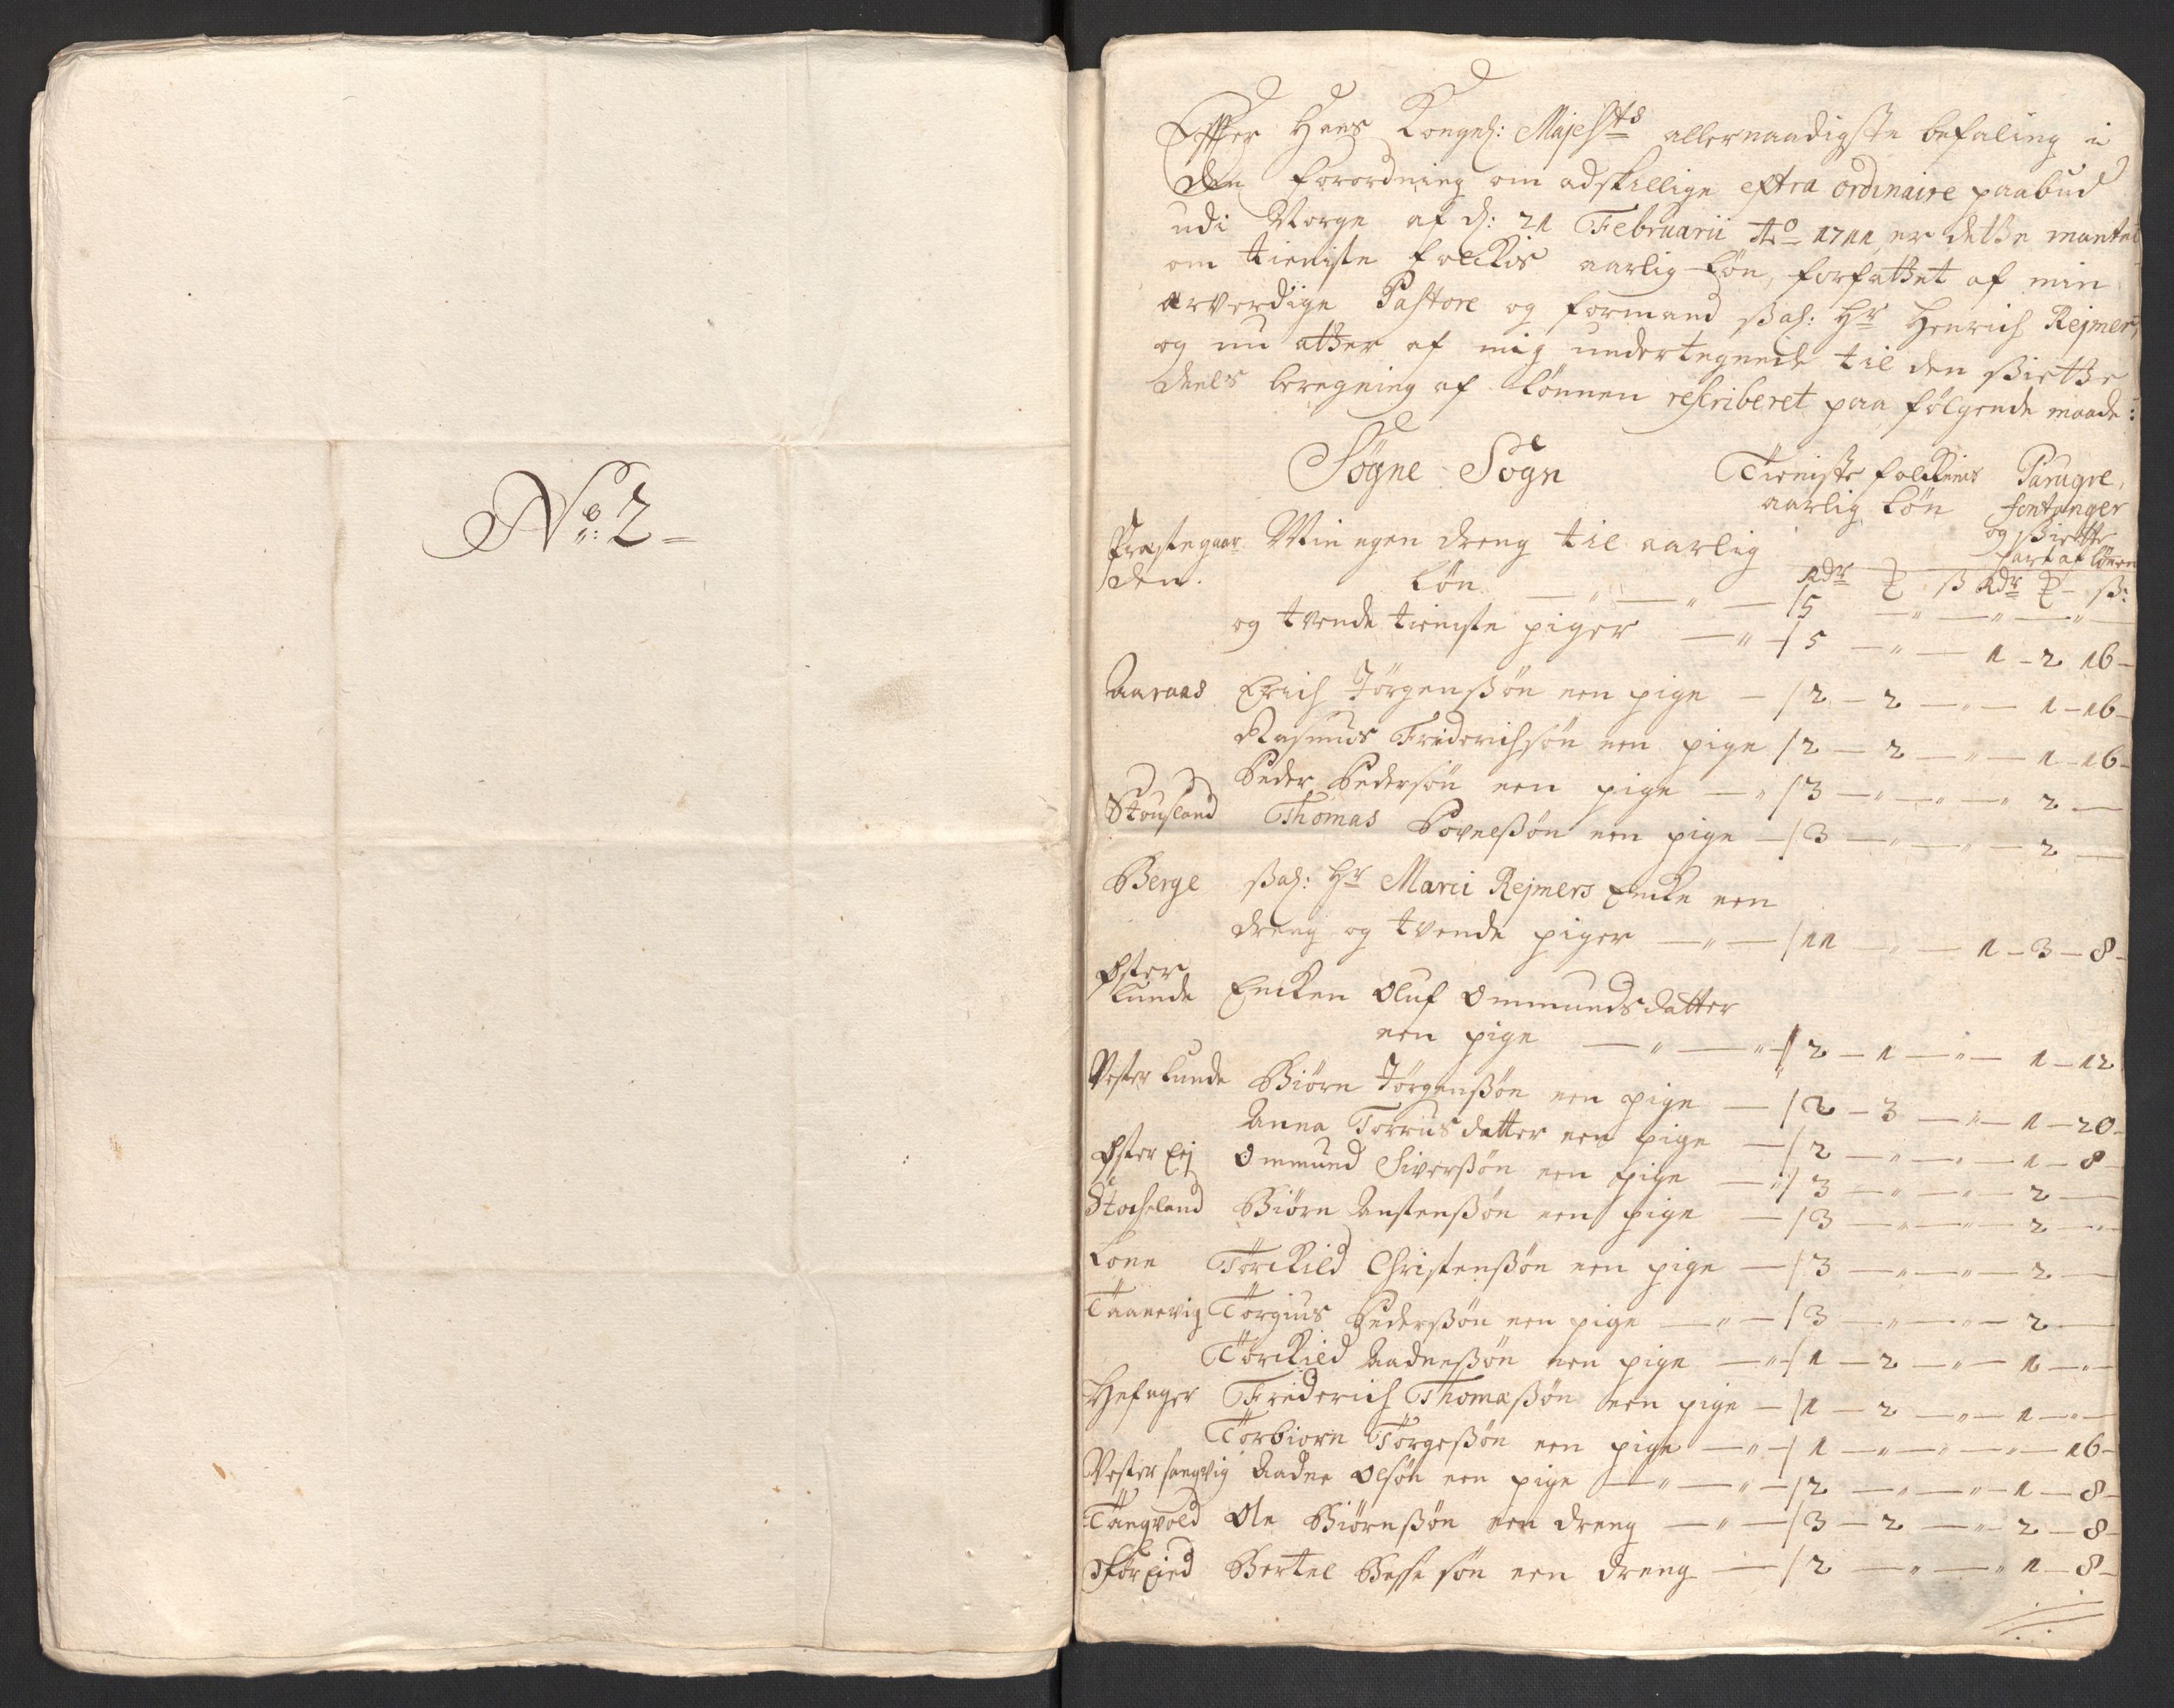 No: 2
Efter Hans Kongel: Majests allernaadigste befaling i
den forordning om adskillige extra ordinaire paabud
udi Norge af d: 21 Februarii Ao 1711 er dette mantal
om tieniste folckis aarlig løn, forfattet af min
ærverdige Pastore og formand sal: Hr Henrich Rejmer,
og nu atter af mig undertegnede til den siette
deels beregning af lønnen rescriberet paa følgende maade:
Søgne Sogn
Tieniste folckenes Parugve,
aarlig løn fontanger
og siette
part af lønen
Præstegaar Min egen dreng til aarlig
den. løn
Rdr ß Rdr ß:
5
og tvende tieniste piger 5 1 - 2 16
Aaraas Erich Jørgenssøn een pige 2 - 2 1 - 16
Rasmus Friderichsøn een pige 2 - 2 1 - 16
Peder Pedersøn een pige 3 2
Stousland Thomas Povelssøn een pige 3 2
Berge sal: Hr Marci Rejmers Encke een
dreng og tvende piger 11 1 - 3 - 8
Øster
Lunde Encken Oluf Ommundsdatter
een pige 2 - 1 1 - 12
Vester Lunde Biørn Jørgenssøn een pige 2 - 3 1 - 20
Anna Torriusdatter een pige 2 1 - 8
Øster Eij Ommund Siverssøn een pige 3 2
Stocheland Biørn Anstenssøn een pige 3 2
Lone Torckild Christenssøn een pige 3 2
Taanevig Torgius Pederssøn een pige 3 2
Torckild Aadnessøn een pige 1 - 2 1
Hefager Friderich Thomassøn een pige 1 - 2 1
Torbiørn Torgessøn een pige 1 16
Vester Langvig Aadne Olsøn een pige 2 1 - 8
Tangvold Ole Biørnssøn een dreng 3 - 2 2 - 8
Bertel søn een dreng 2 1 - 8